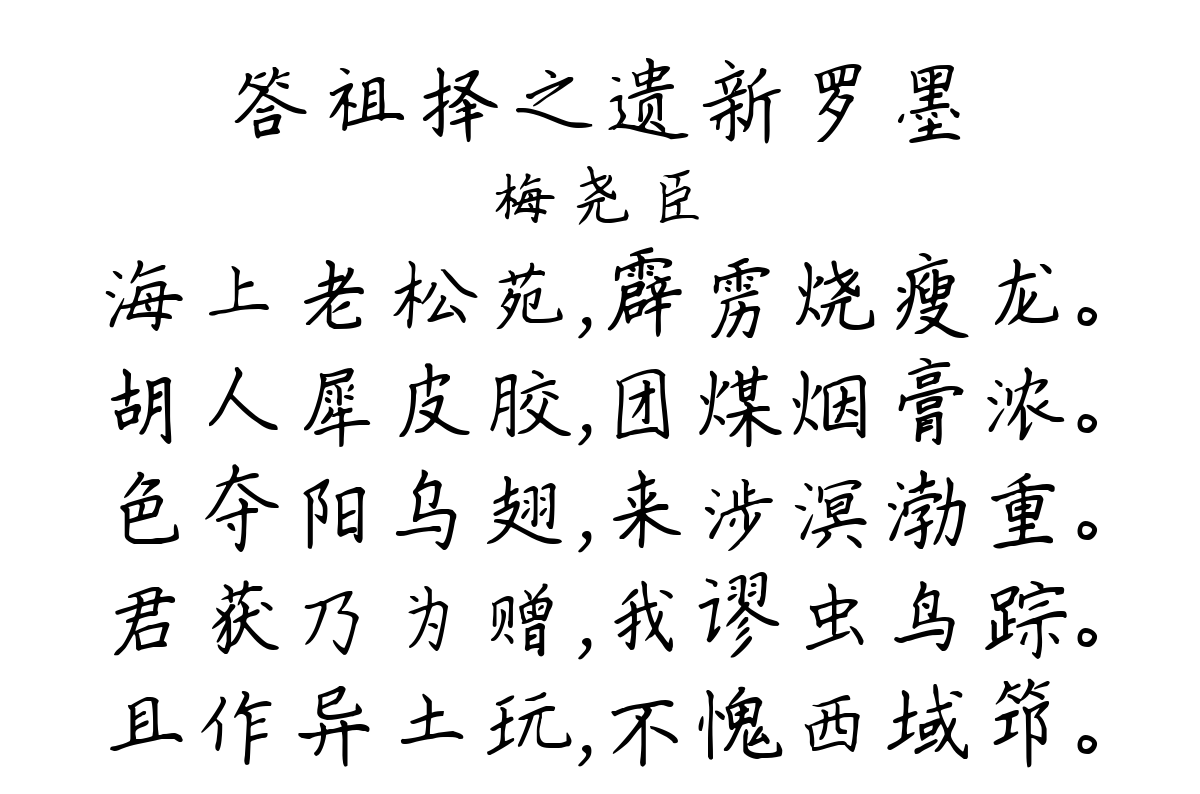 答祖择之遗新罗墨
梅尧臣
海上老松苑,霹雳烧瘦龙。
胡人犀皮胶,团煤烟膏浓。
色夺阳乌翅,来涉溟渤重。
君获乃为赠,我谬虫鸟踪。
且作异土玩,不愧西域筇。